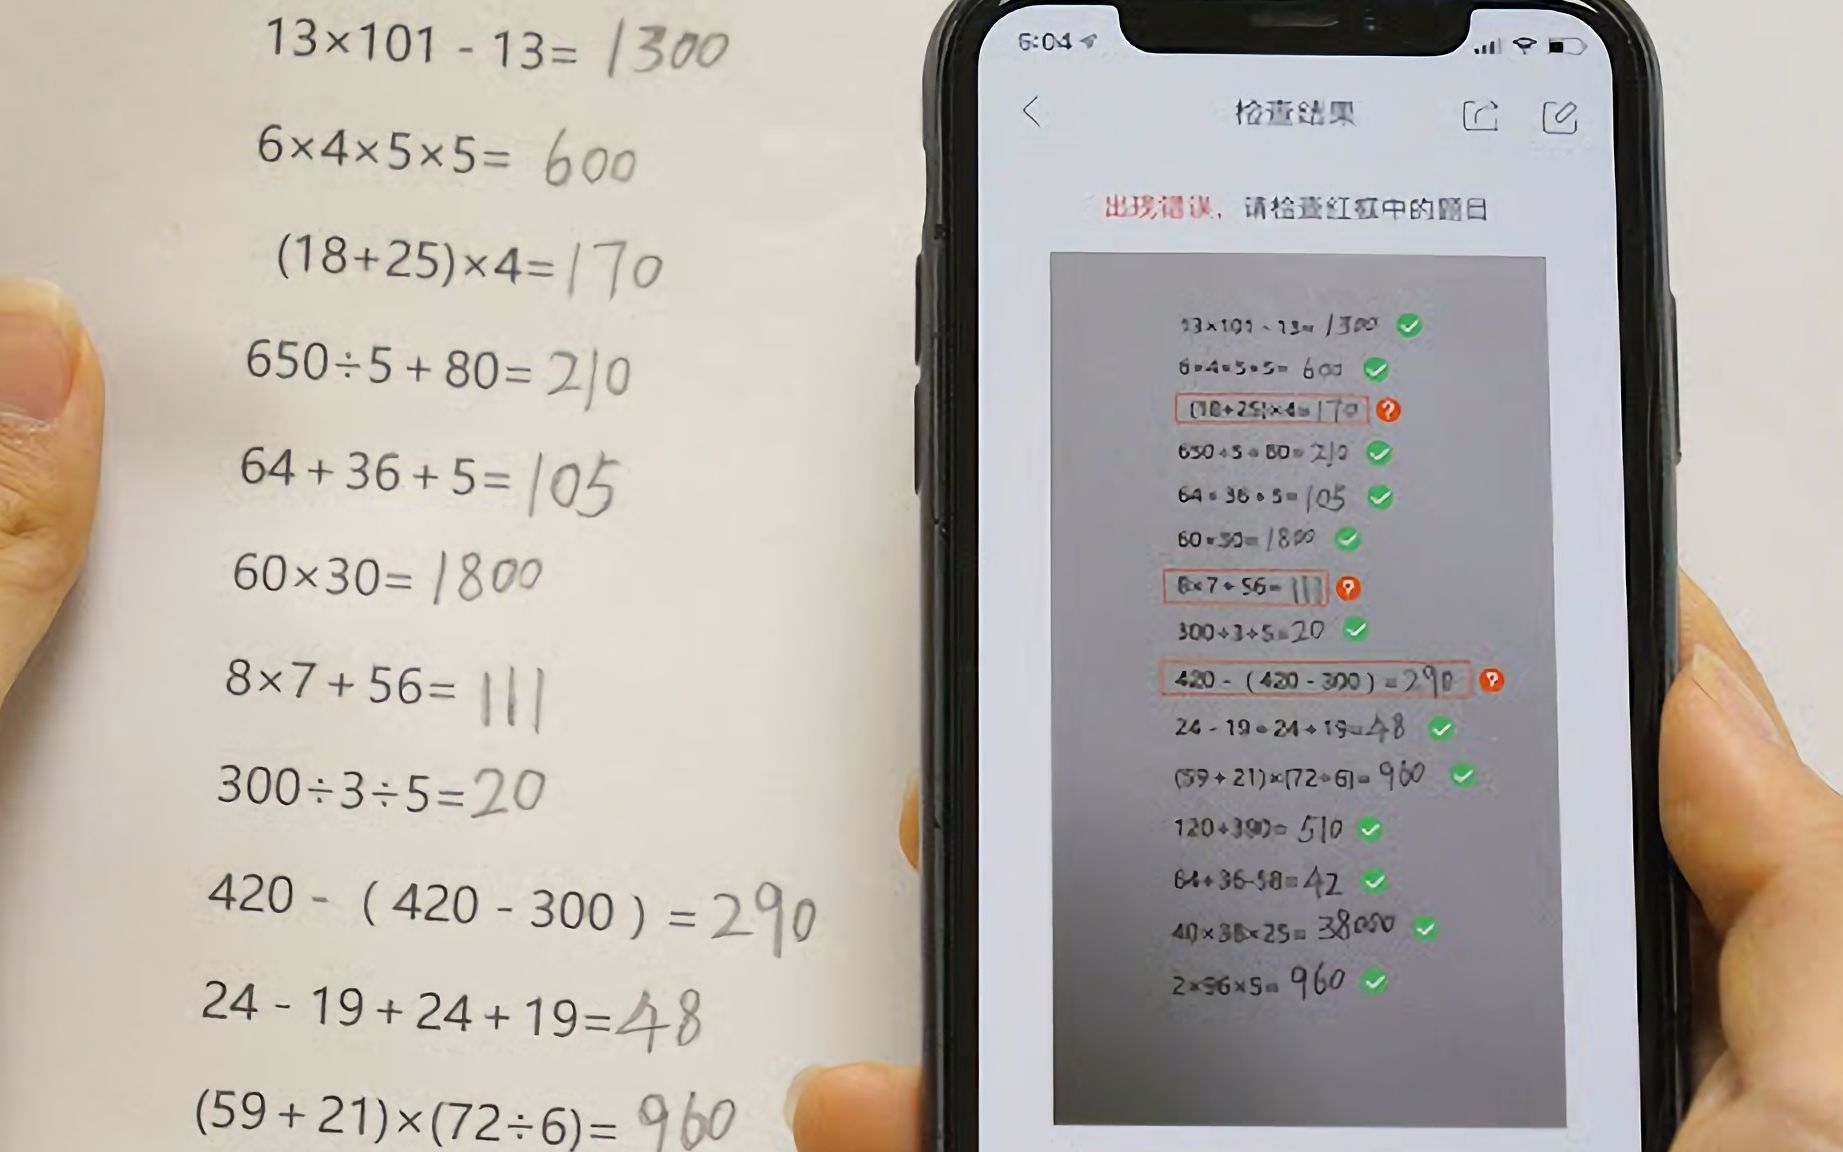 13×101 - 13= 1300
6×4×5×5= 600
(18+25)×4=170
650÷5 + 80= 210
64 + 36 + 5= 105
60×30= 1800
8×7 + 56= 111
300÷3÷5=20
420 - ( 420 - 300 ) = 290
24 - 19 + 24 + 19=48
(59 + 21)×(72÷6)= 960
6:04
检查结果
出现错误，请检查红框中的题目
13×101 - 13= 1300
6×4×5×5= 600
(18+25)×4=170
650÷5 + 80= 210
64 + 36 + 5= 105
60×30= 1800
8×7 + 56= 111
300÷3÷5=20
420 - ( 420 - 300 ) = 290
24 - 19 + 24 + 19=48
(59 + 21)×(72÷6)= 960
120+390= 510
64+36-58= 42
40×38×25= 38000
2×96×5= 960